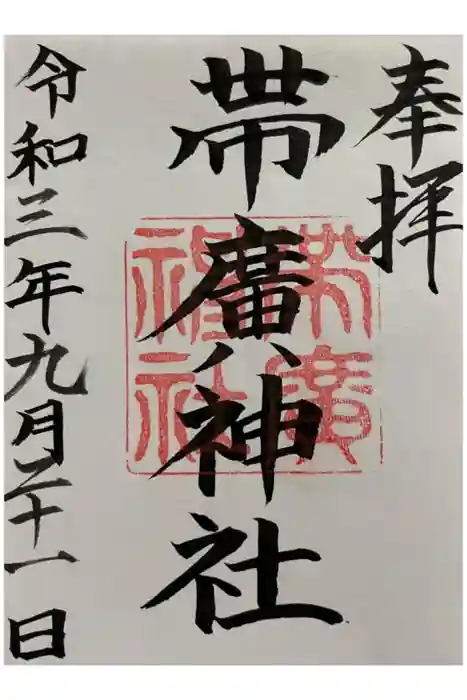 奉拝
帯廣神社
帯廣
神社
令和三年九月二十一日